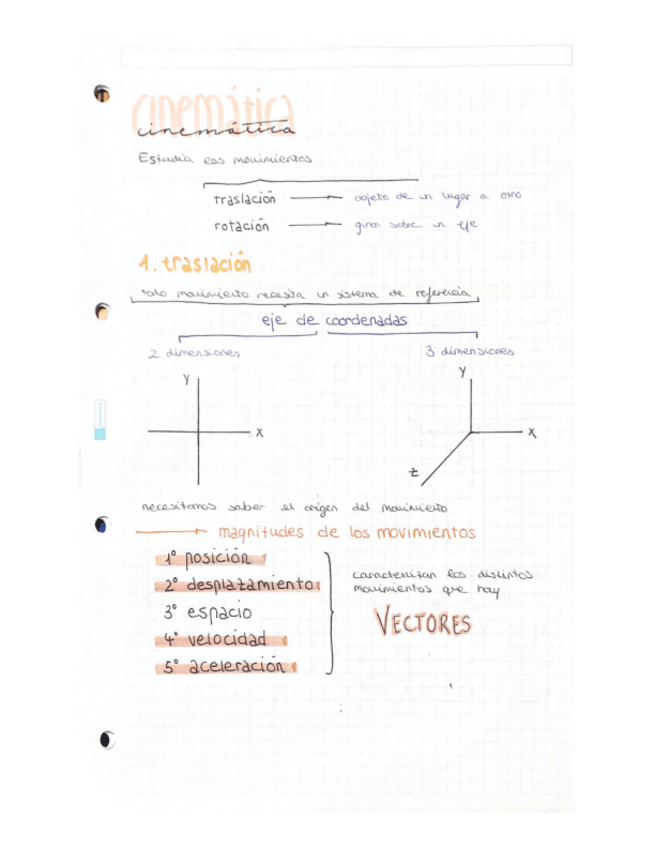 cinemática
cinemática
Estudia los movimientos
traslación → objeto de un lugar a otro
rotación → giran sobre un eje
1. traslación
todo movimiento necesita un sistema de referencia
eje de coordenadas
2 dimensiones 3 dimensiones
Y Y
X X
z
necesitamos saber el origen del movimiento
→ magnitudes de los movimientos
1º posición
2º desplazamiento
3º espacio
4º velocidad
5º aceleración
caracterizan los distintos
movimientos que hay
VECTORES